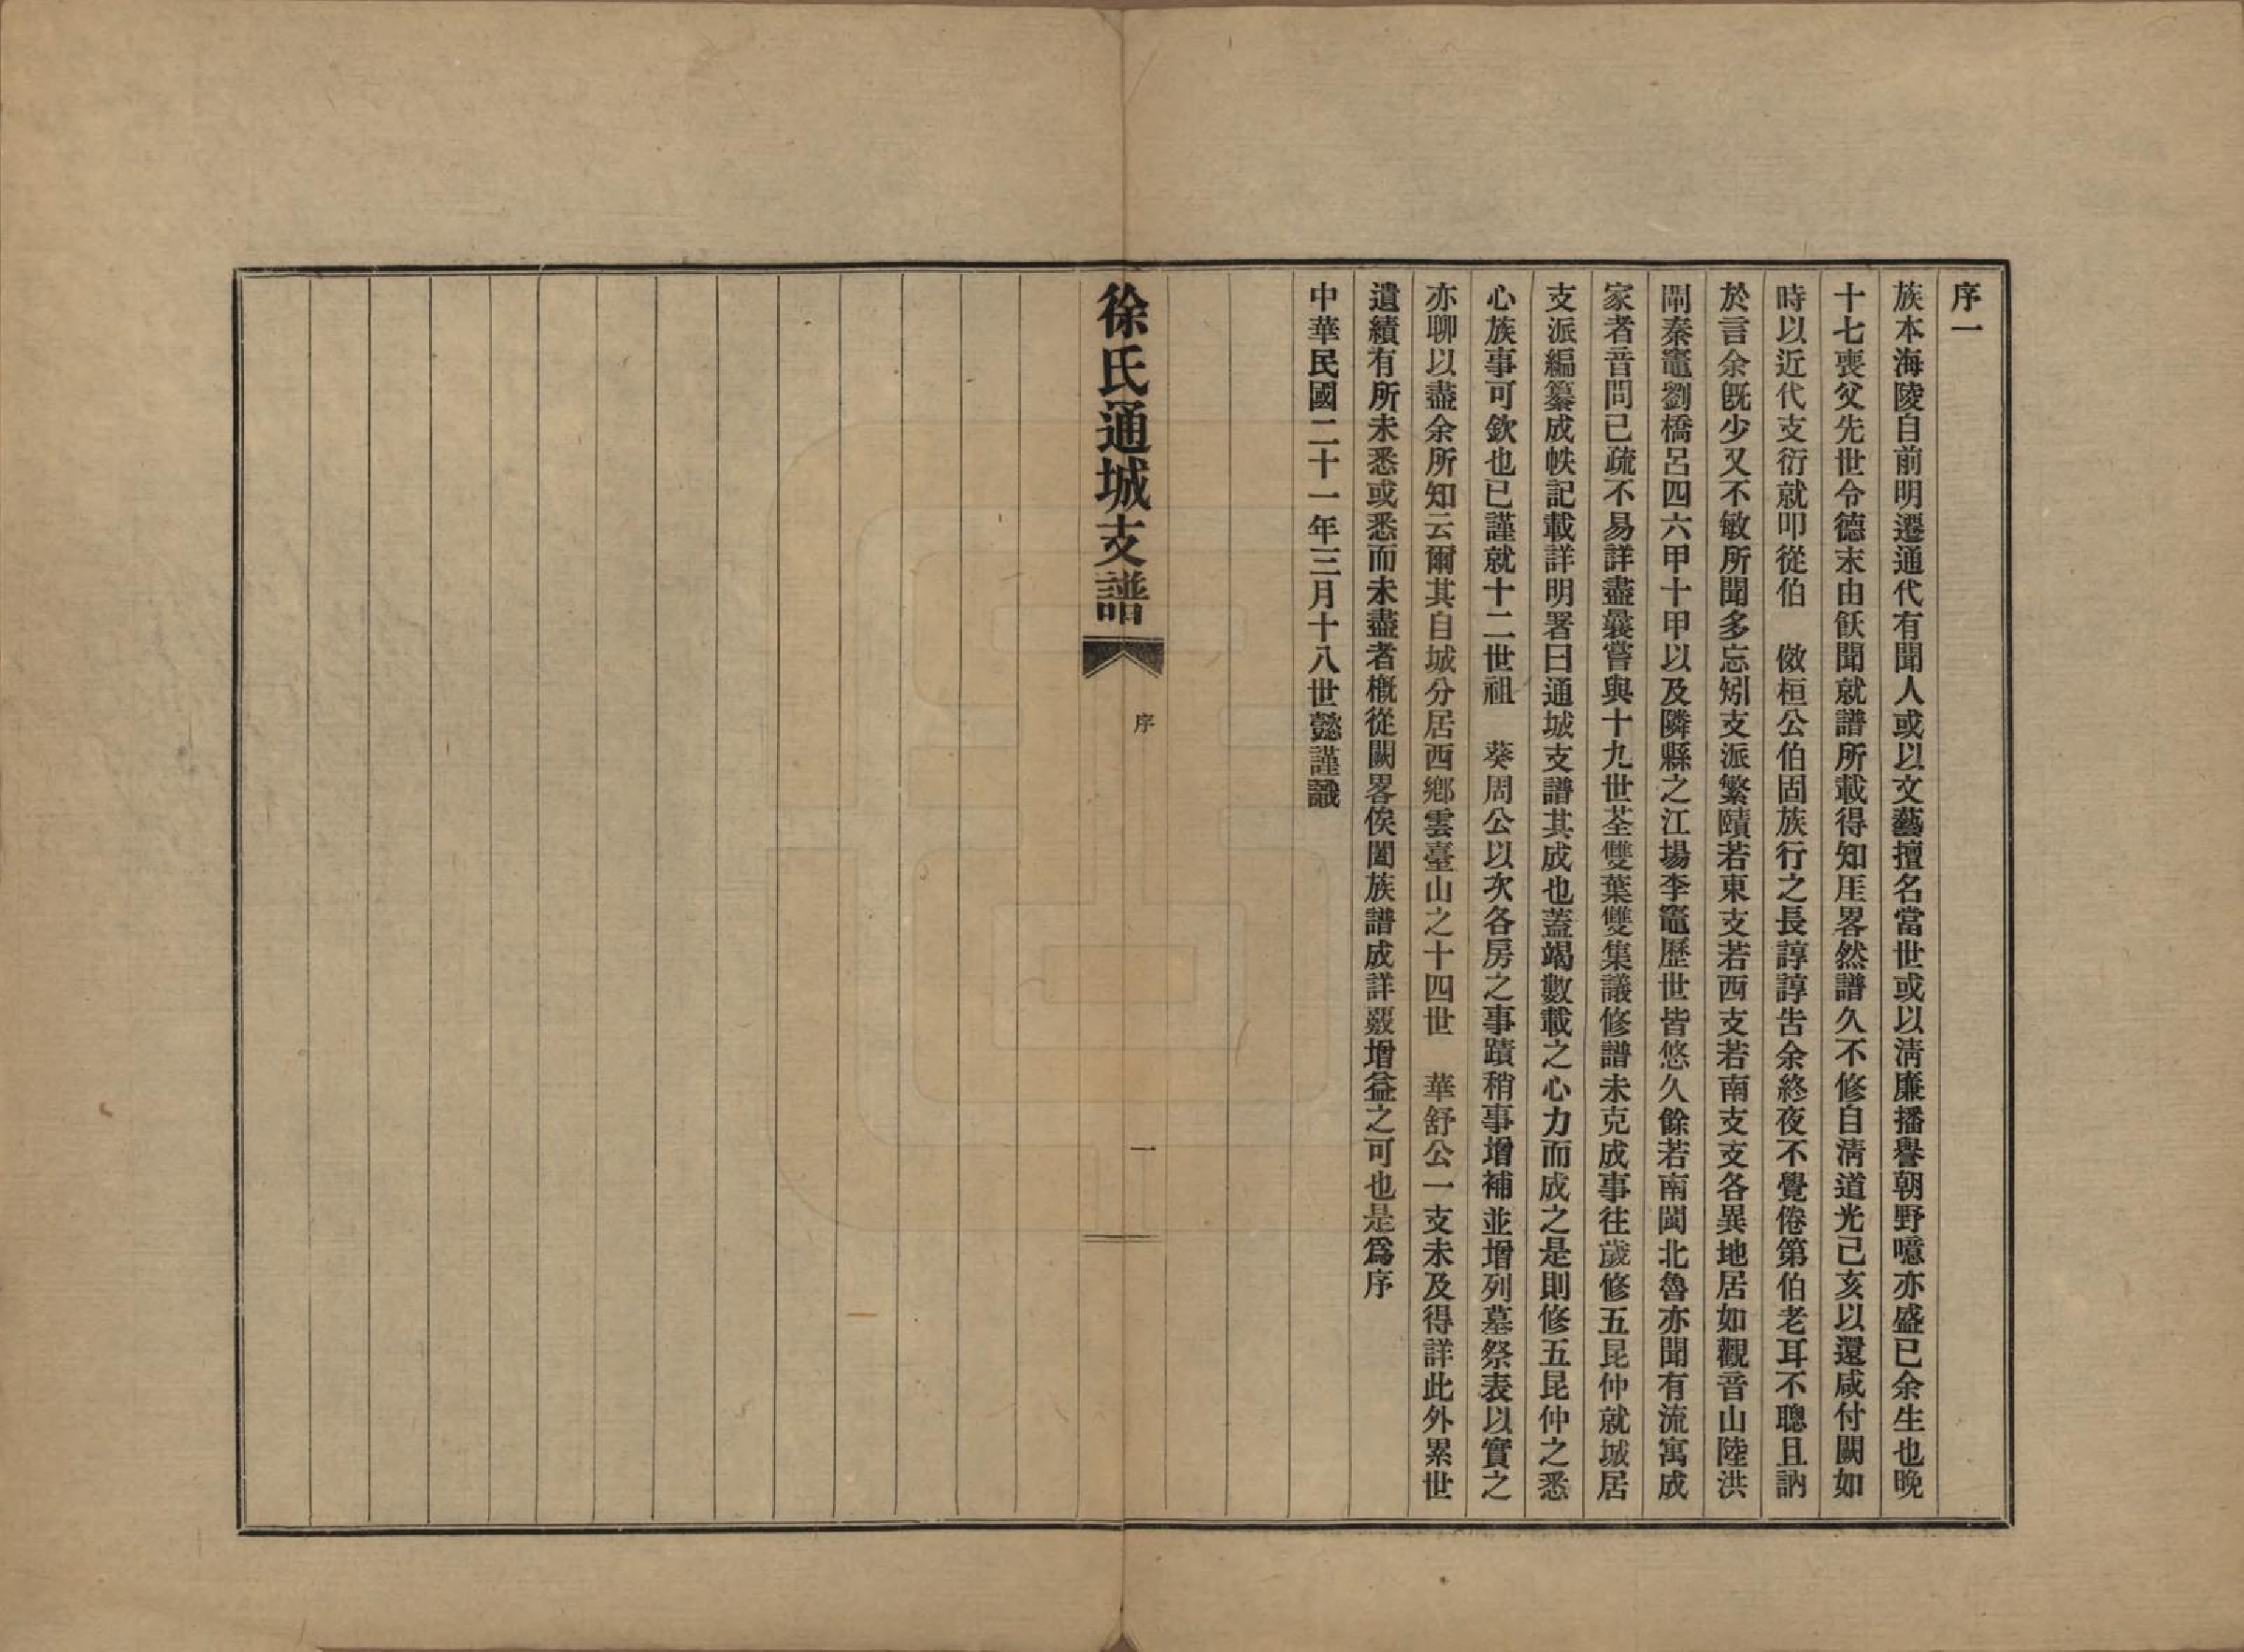 序一
族本海陵自前明遷通代有聞人或以文藝擅名當世或以淸廉播譽朝野噫亦盛已余生也晚
十七喪父先世令德末由飫聞就譜所載得知厓畧然譜久不修自淸道光己亥以還咸付闕如
時以近代支衍就叩從伯　儆桓公伯固族行之長諄諄吿余終夜不覺倦第伯老耳不聰且訥
於言余旣少又不敏所聞多忘矧支派繁賾若東支若西支若南支支各異地居如觀音山陸洪
閘秦竈劉橋呂四六甲十甲以及隣縣之江場李竈歷世皆悠久餘若南閩北魯亦聞有流寓成
家者音問已疏不易詳盡曩嘗與十九世荃雙葉雙集議修譜未克成事往歲修五昆仲就城居
支派編纂成帙記載詳明署曰通城支譜其成也蓋竭數載之心力而成之是則修五昆仲之悉
心族事可欽也已謹就十二世祖　葵周公以次各房之事蹟稍事增補並增列墓祭表以實之
亦聊以盡余所知云爾其自城分居西鄉雲臺山之十四世　華舒公一支未及得詳此外累世
遺績有所未悉或悉而未盡者槪從闕畧俟闔族譜成詳覈增益之可也是爲序
中華民國二十一年三月十八世懿謹識
徐氏通城支譜
序
一